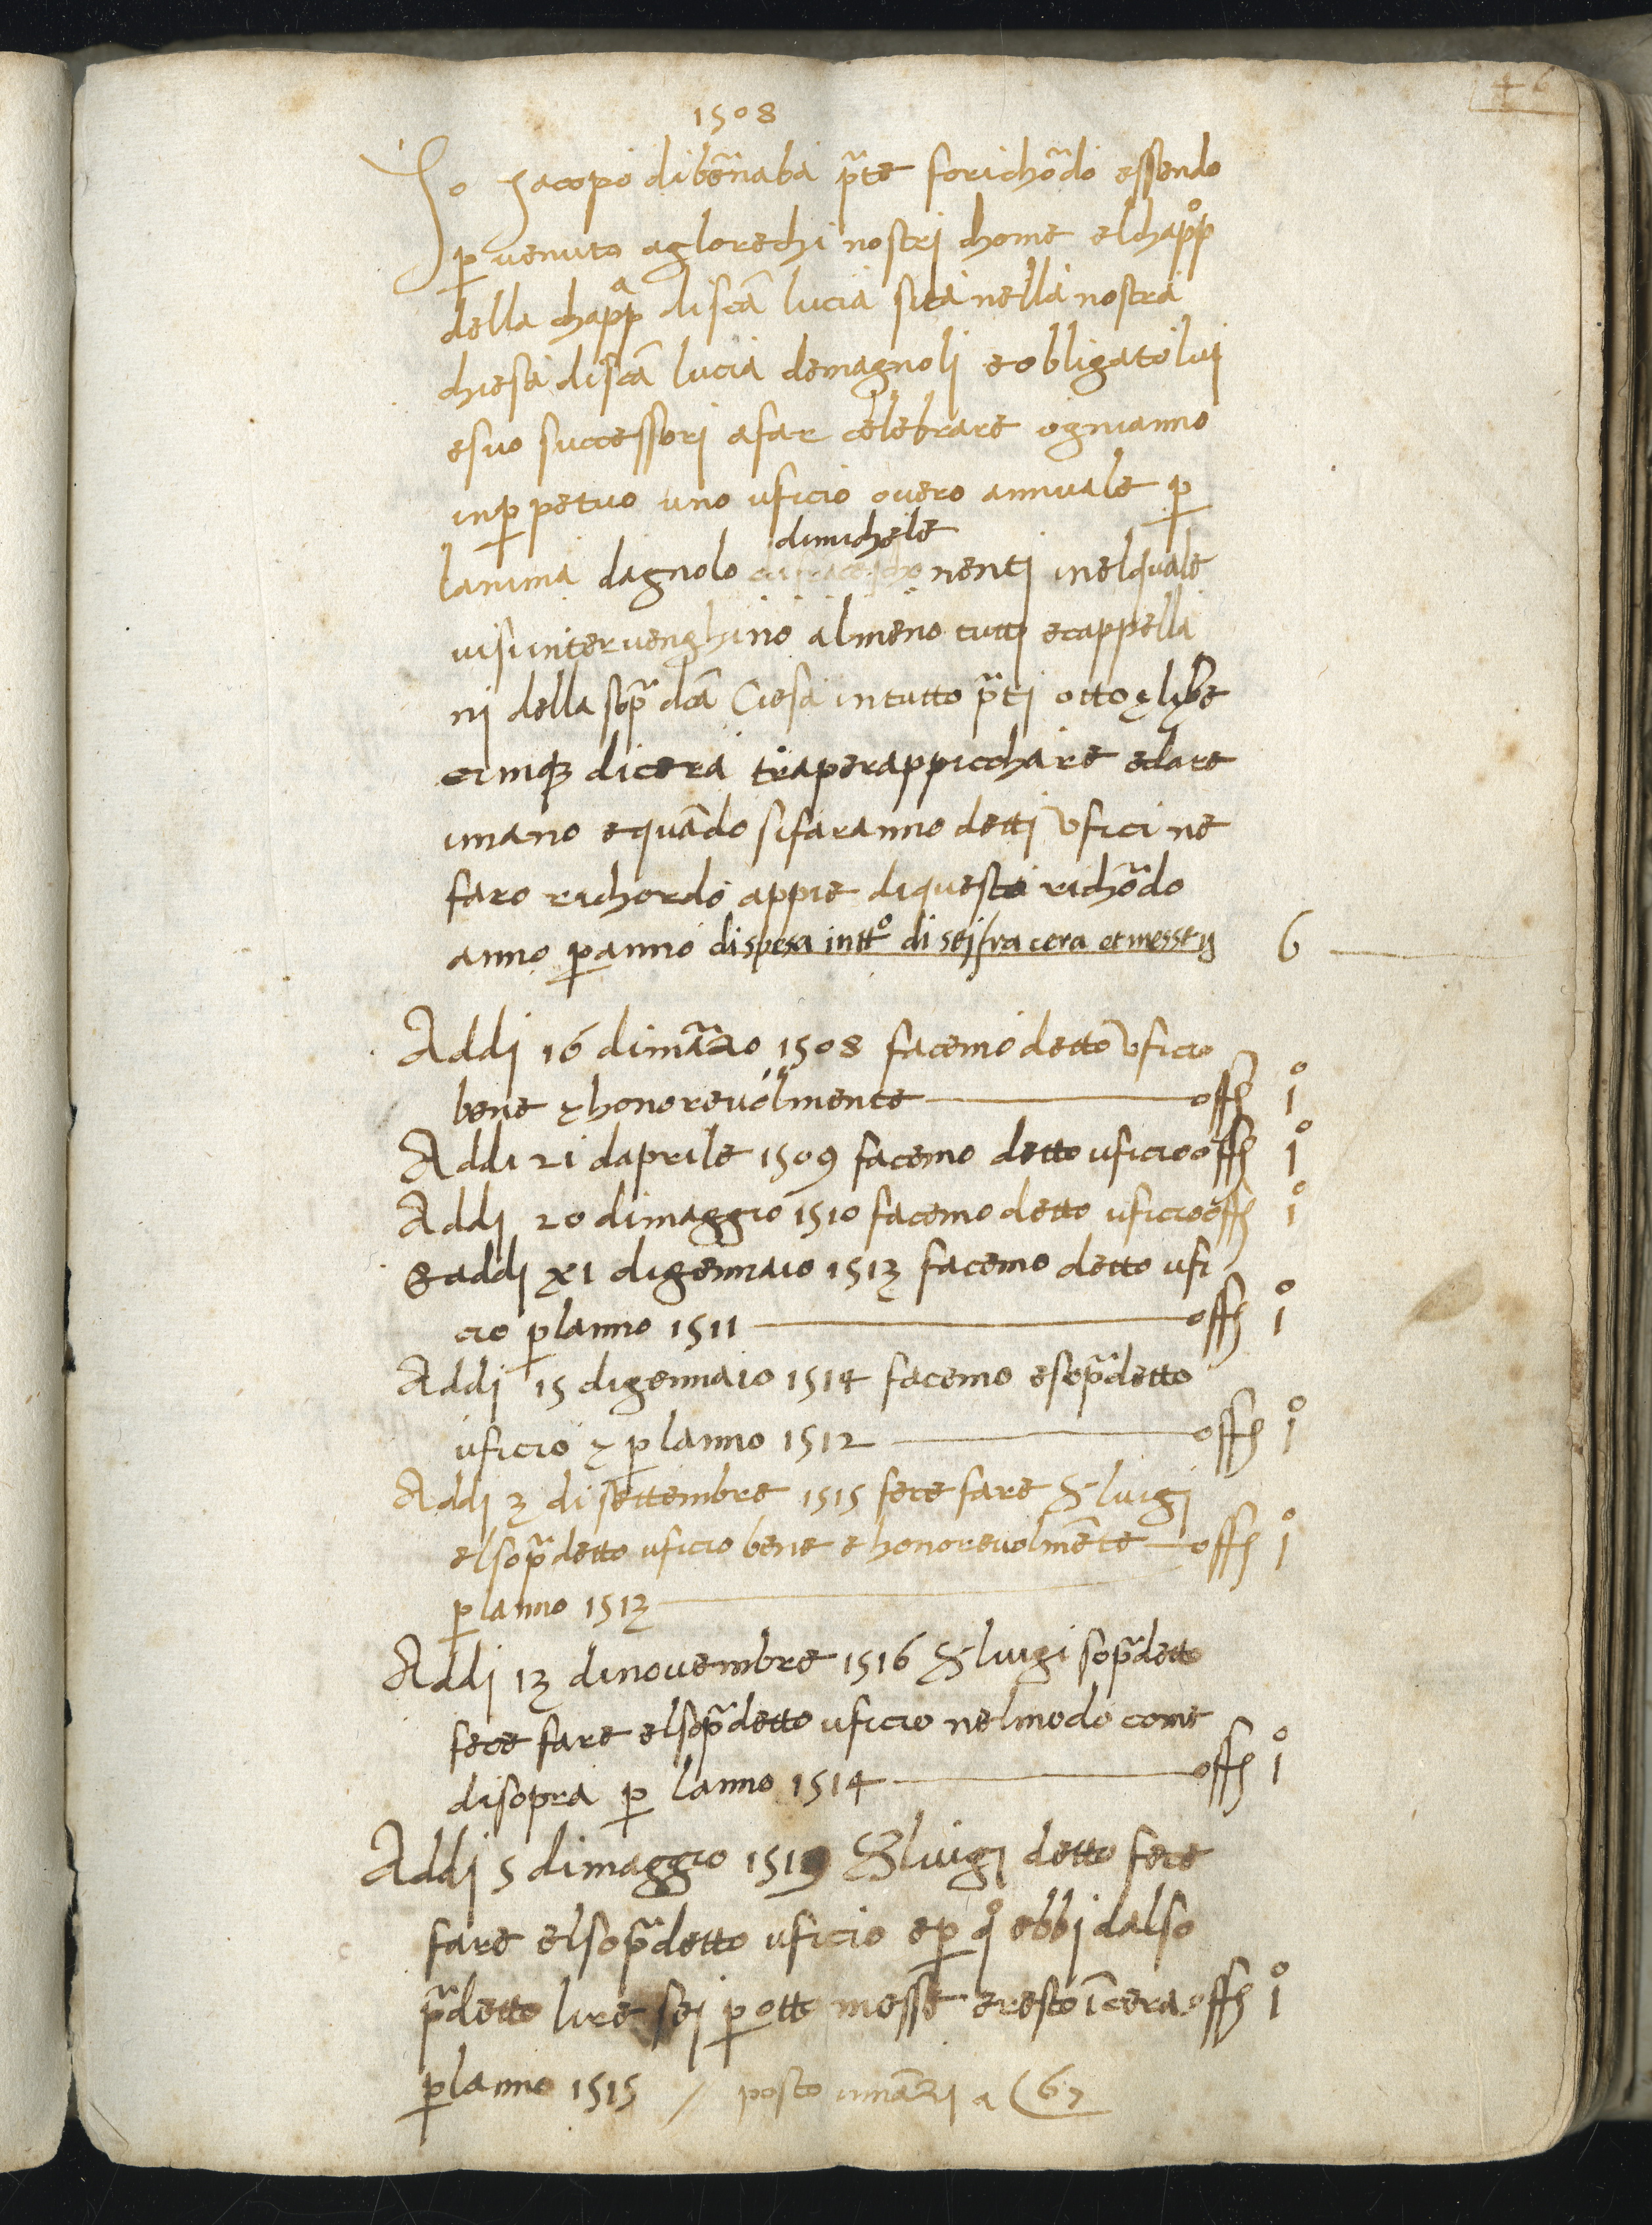 46
1508
Yo Jacopo di bẽnaba p̃te fo richõdo essendo
ꝑ venuto aglorechi nostri chome el chapp̊
della chapp̃a di scã lucia sita nella nostra
chiesa di scã lucia demagnoli e obligato lui
e suo successori a far celebrare ogni anno
inꝑpetuo uno uficio overo annuale ꝑ
lanima dagnolo di michele nenti inel quale
visi intervenghino al meno tutti e cappella
ni della sop̃ dcã Ciesa in tutto p̃ti otto & libre
cinqȝ di cera tra per appicchaire e dare
i mano e quãdo si faranno detti ufici ne
faro richordo appie di questo richõdo
anno ꝑ anno di spesa in ttº di sej fra cera et messe 6
Addi 16 di mãzo 1508 facemo detto uficio
bene & honorevolmente offº 1º
Addi 21 daprile 1509 facemo detto uficio offº 1º
Addi 20 di maggio 1510 facemo detto uficio offº 1º
& addi XI di gennaio 1513 facemo detto ufi
cio ꝑ lanno 1511 offº 1º
Addi 15 di gennaio 1514 facemo e sop̃detto
uficio & ꝑ lanno 1512 offº 1º
Addi 3 di settembre 1515 fece fare S luigi
el sop̃detto uficio bene e honorevolmẽte offº 1º
ꝑ lanno 1513
Addi 13 di novembre 1516 S luigi sop̃detto
fece fare el sop̃detto uficio nel modo come
di sopra ꝑ lanno 1514 offº 1º
Addi 5 di maggio 1519 S luigi detto fece
fare el sop̃detto uficio e ꝑ qº ebbi dal so
p̃detto lire sej ꝑ otto messe e resto ĩ cera offº 1º
ꝑ lanno 1515 / posto inñazi a (67